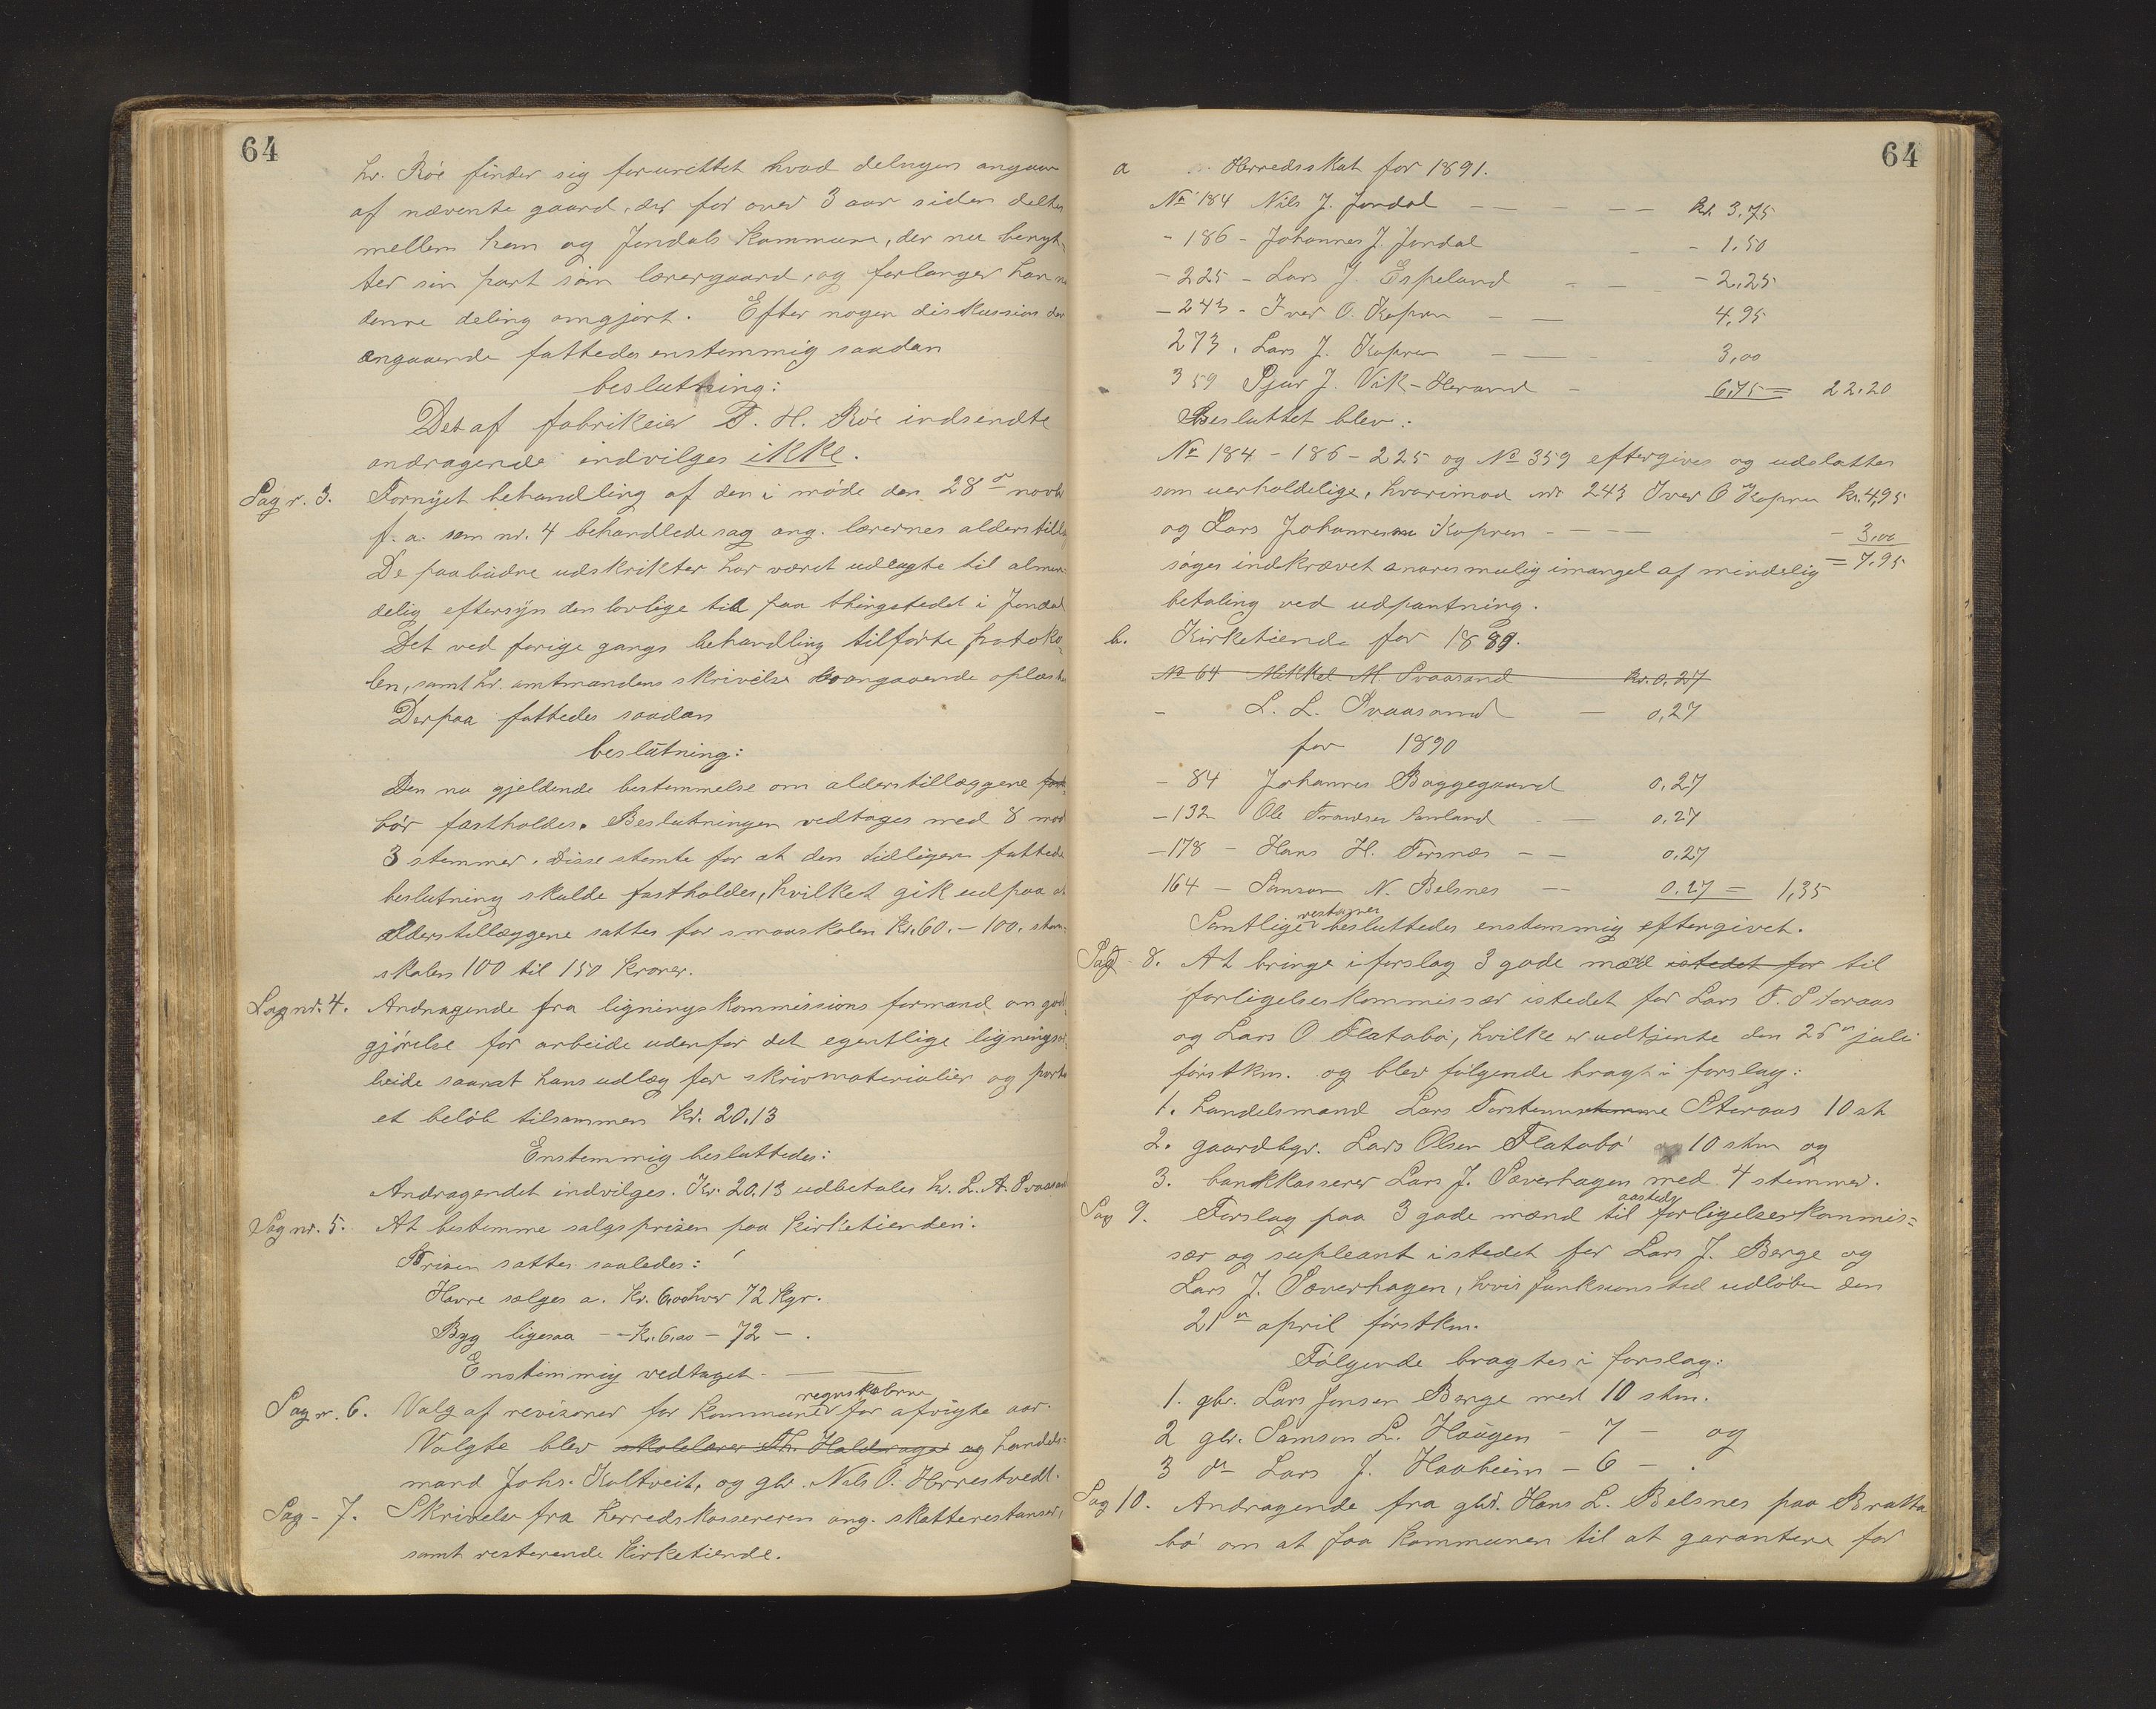 64
hr. Röe finder sig forurettet hvad delingen angaar
af nævnte gaard, der for over 3 aar siden deltes
mellem ham og Jondals kommune, der nu benyt-
ter sin part som lærergaard, og forlanger han nu
denne deling omgjort. Efter nogen diskussion der
angaaende fattedes enstemmig saadan
beslutning:
Det af fabrikeier T. H. Röe indsendte
andragende indvilges ikke.
Sag nr. 3. Fornyet behandling af den i möde den 28de novbr
f. a. som nr. 4 behandlede sag ang. lærernes alderstillæ
De paabudne udskrifter har været udlagte til almin-
delig eftersyn den lovlige tid paa thingstedet i Jondal
Det ved forige gangs behandling tilförte protoko-
len, samt hr. amtmandens skrivelse desangaaende oplæstes
Derpaa fattedes saadan
beslutning:
Den nu gjeldende bestemmelse om alderstillæggene for
bör fastholdes. Beslutningen vedtages med 8 mod
3 stemmer. Disse stemte for at den tidligere fattede
beslutning skulde fastholdes, hvilket gik ud paa at
alderstillæggene sattes for smaaskolen Kr. 60.- 100. stor-
skolen 100 til 150 kroner.
Sag nr. 4. Andragende fra ligningskommissions formand om god-
gjörelse for arbeide udenfor det egentlige ligningsar-
beide saavat hans udlæg for skrivmaterialier og porto
et belöb tilsammen Kr. 20.13
Enstemmig besluttedes:
Andragendet indvilges. Kr. 20.13 udbetales hr. L. A. Svaasand
Sag nr. 5. At bestemme salgsprisen paa kirketienden.
Prisen sattes saaledes:
Havre sælges a. Kr. 6,00 hver 72 Kgr.
Byg ligesaa - - Kr. 6.00 - 72 - .
Enstemmig vedtaget.
Sag nr. 6. Valg af revisorer for kommune regnskaberne for afvigte aar.
Valgte blev skolelærer Th. Haldorager og handels-
mand Johs. Koltveit, og gbr. Nils O. Herrestvedt.
Sag - 7. Skrivelse fra herredskassereren ang. skatterestanser,
samt resterende kirketiende.
64
a Herredsskat for 1891.
No 184 Nils J. Jondal - - - - Kr. 3,75
- 186 - Johannes J. Jondal - - 1.50
- 225 - Lars J. Espeland - - - 2,25
- 243 - Iver O. Kopren - - 4,95
273. Lars J. Kopren - - - 3,00
359 Sjur J. Vik-Herand - 6,75 = 22.20
Besluttet blev:
No 184 - 186 - 225 og No 359 eftergives og udslettes
som uerholdelige, hvorimod nr 243 Iver O Kopren Kr. 4,95
og Lars Johannesen Kopren - - - - 3.00
söges indkrævet snarest mulig i mangel af mindelig = 7,95
betaling ved udpantning.
b. Kirketiende for 1889.
No 64 Mikkel M. Svaasand Kr. 0.27
- L. L. Svaasand - 0,27
for 1890
- 84 Johannes Baggegaard 0.27
- 132 Ole Samland - 0.27
- 178 - Hans H. Torsnæs - - 0.27
164 - Samson N. Belsnes - - 0.27 = 1,35
Samtlige restancer besluttedes enstemmig eftergivet.
Sag 8. At bringe i forslag 3 gode mænd istedet for til
forligelseskommissær istedet for Lars T. Storaas
og Lars O Flatabö, hvilke er udtjente den 25de juli
förstkm. og blev fölgende bragt i forslag:
1. handelsmand Lars Storaas 10 st
2. gaardbgr. Lars Olsen Flatabö 10 stm og
3. bankkasserer Lars J. Sæverhagen med 4 stemmer.
Sag 9. Forslag paa 3 gode mænd til aasteds forligelseskommis-
sær og supleant istedet for Lars J. Berge og
Lars J. Sæverhagen, hvis funksionstid udlöber den
21de april förstkm.
Fölgende bragtes i forslag:
1. gbr. Lars Jonsen Berge med 10 stm.
2 gbr. Samson L. Haugen - 7 - og
3 do Lars J. Haaheim - 6 - .
Sag 10. Andragende fra gbr. Hans L. Belsnes paa Bratta
bö om at faa kommunen til at garantere for